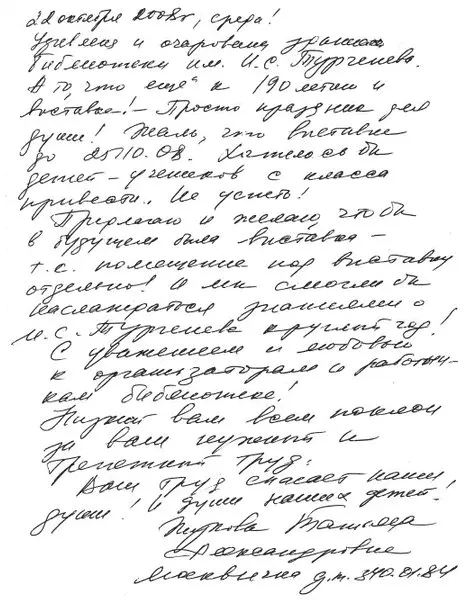 22 октября 2008г, среда!
Удивлена и очарована зданием
библиотеки им. И.С. Тургенева.
А то, что ещё к 190летию и
выставка! – Просто праздник для
души! Жаль, что выставка
до 25/10.08. Хотелось бы
детей – учеников с класса
привести. Не успеть!
Предлагаю и желаю, чтобы
в будущем была выставка –
т.е. помещение под выставку
отдельно! И мы смогли бы
наслаждаться знаниями о
И.С. Тургеневе круглый год!
С уважением и любовью
к организаторам и работни-
кам библиотеке!
Низкий вам всем поклон
за ваш нужный и
трепетный труд.
Ваш труд спасает наши
души! И души наших детей!
Татьяна
Александровна
Москвичка д.т. 340.01.84